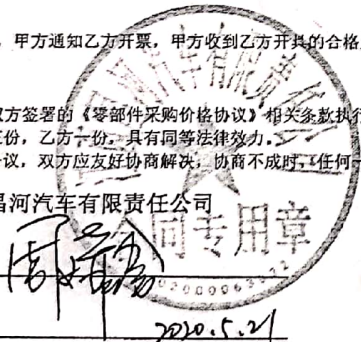 ，甲方通知乙方开票，甲方收到乙方开具的合格
双方签署的《零部件采购价格协议》相关条款执行
份，乙方一份，具有同等法律效力。
议，双方应友好协商解决，协商不成时，任何
昌河汽车有限责任公司
同专用章
2020.5.21